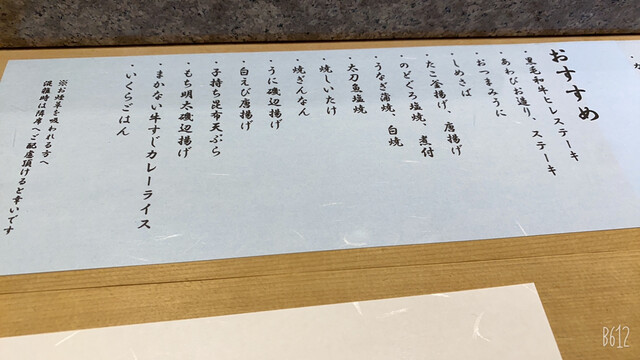 おすすめ
・黒毛和牛ヒレステーキ
・あわびお造り、ステーキ
・おつまみうに
・しめさば
・たこ釜揚げ、唐揚げ
・のどぐろ塩焼、煮付
・うなぎ蒲焼、白焼
・太刀魚塩焼
・焼しいたけ
・焼ぎんなん
・うに磯辺揚げ
・白えび唐揚げ
・子持ち昆布天ぷら
・もち明太磯辺揚げ
・まかない牛すじカレーライス
・いくらごはん
※お煙草を吸われる方へ
混雑時は隣席へご配慮頂けると幸いです
B612